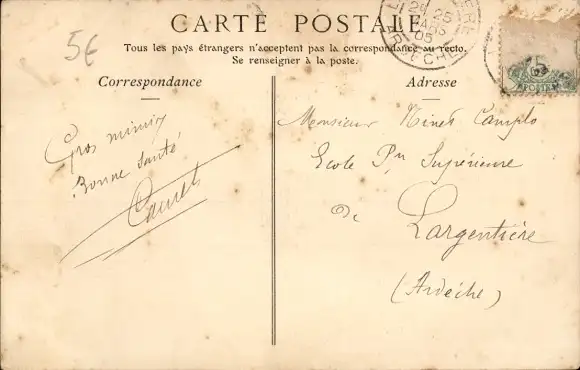 5€
CARTE POSTALE
Tous les pays étrangers n'acceptent pas la correspondance au recto.
Se renseigner à la poste.
Correspondance
Adresse
Gros mimis
Bonne Santé
Monsieur
Ecole Pre Supérieure
De
Largentière
(Ardèche)
25
05
ARDECHE
5
POSTES